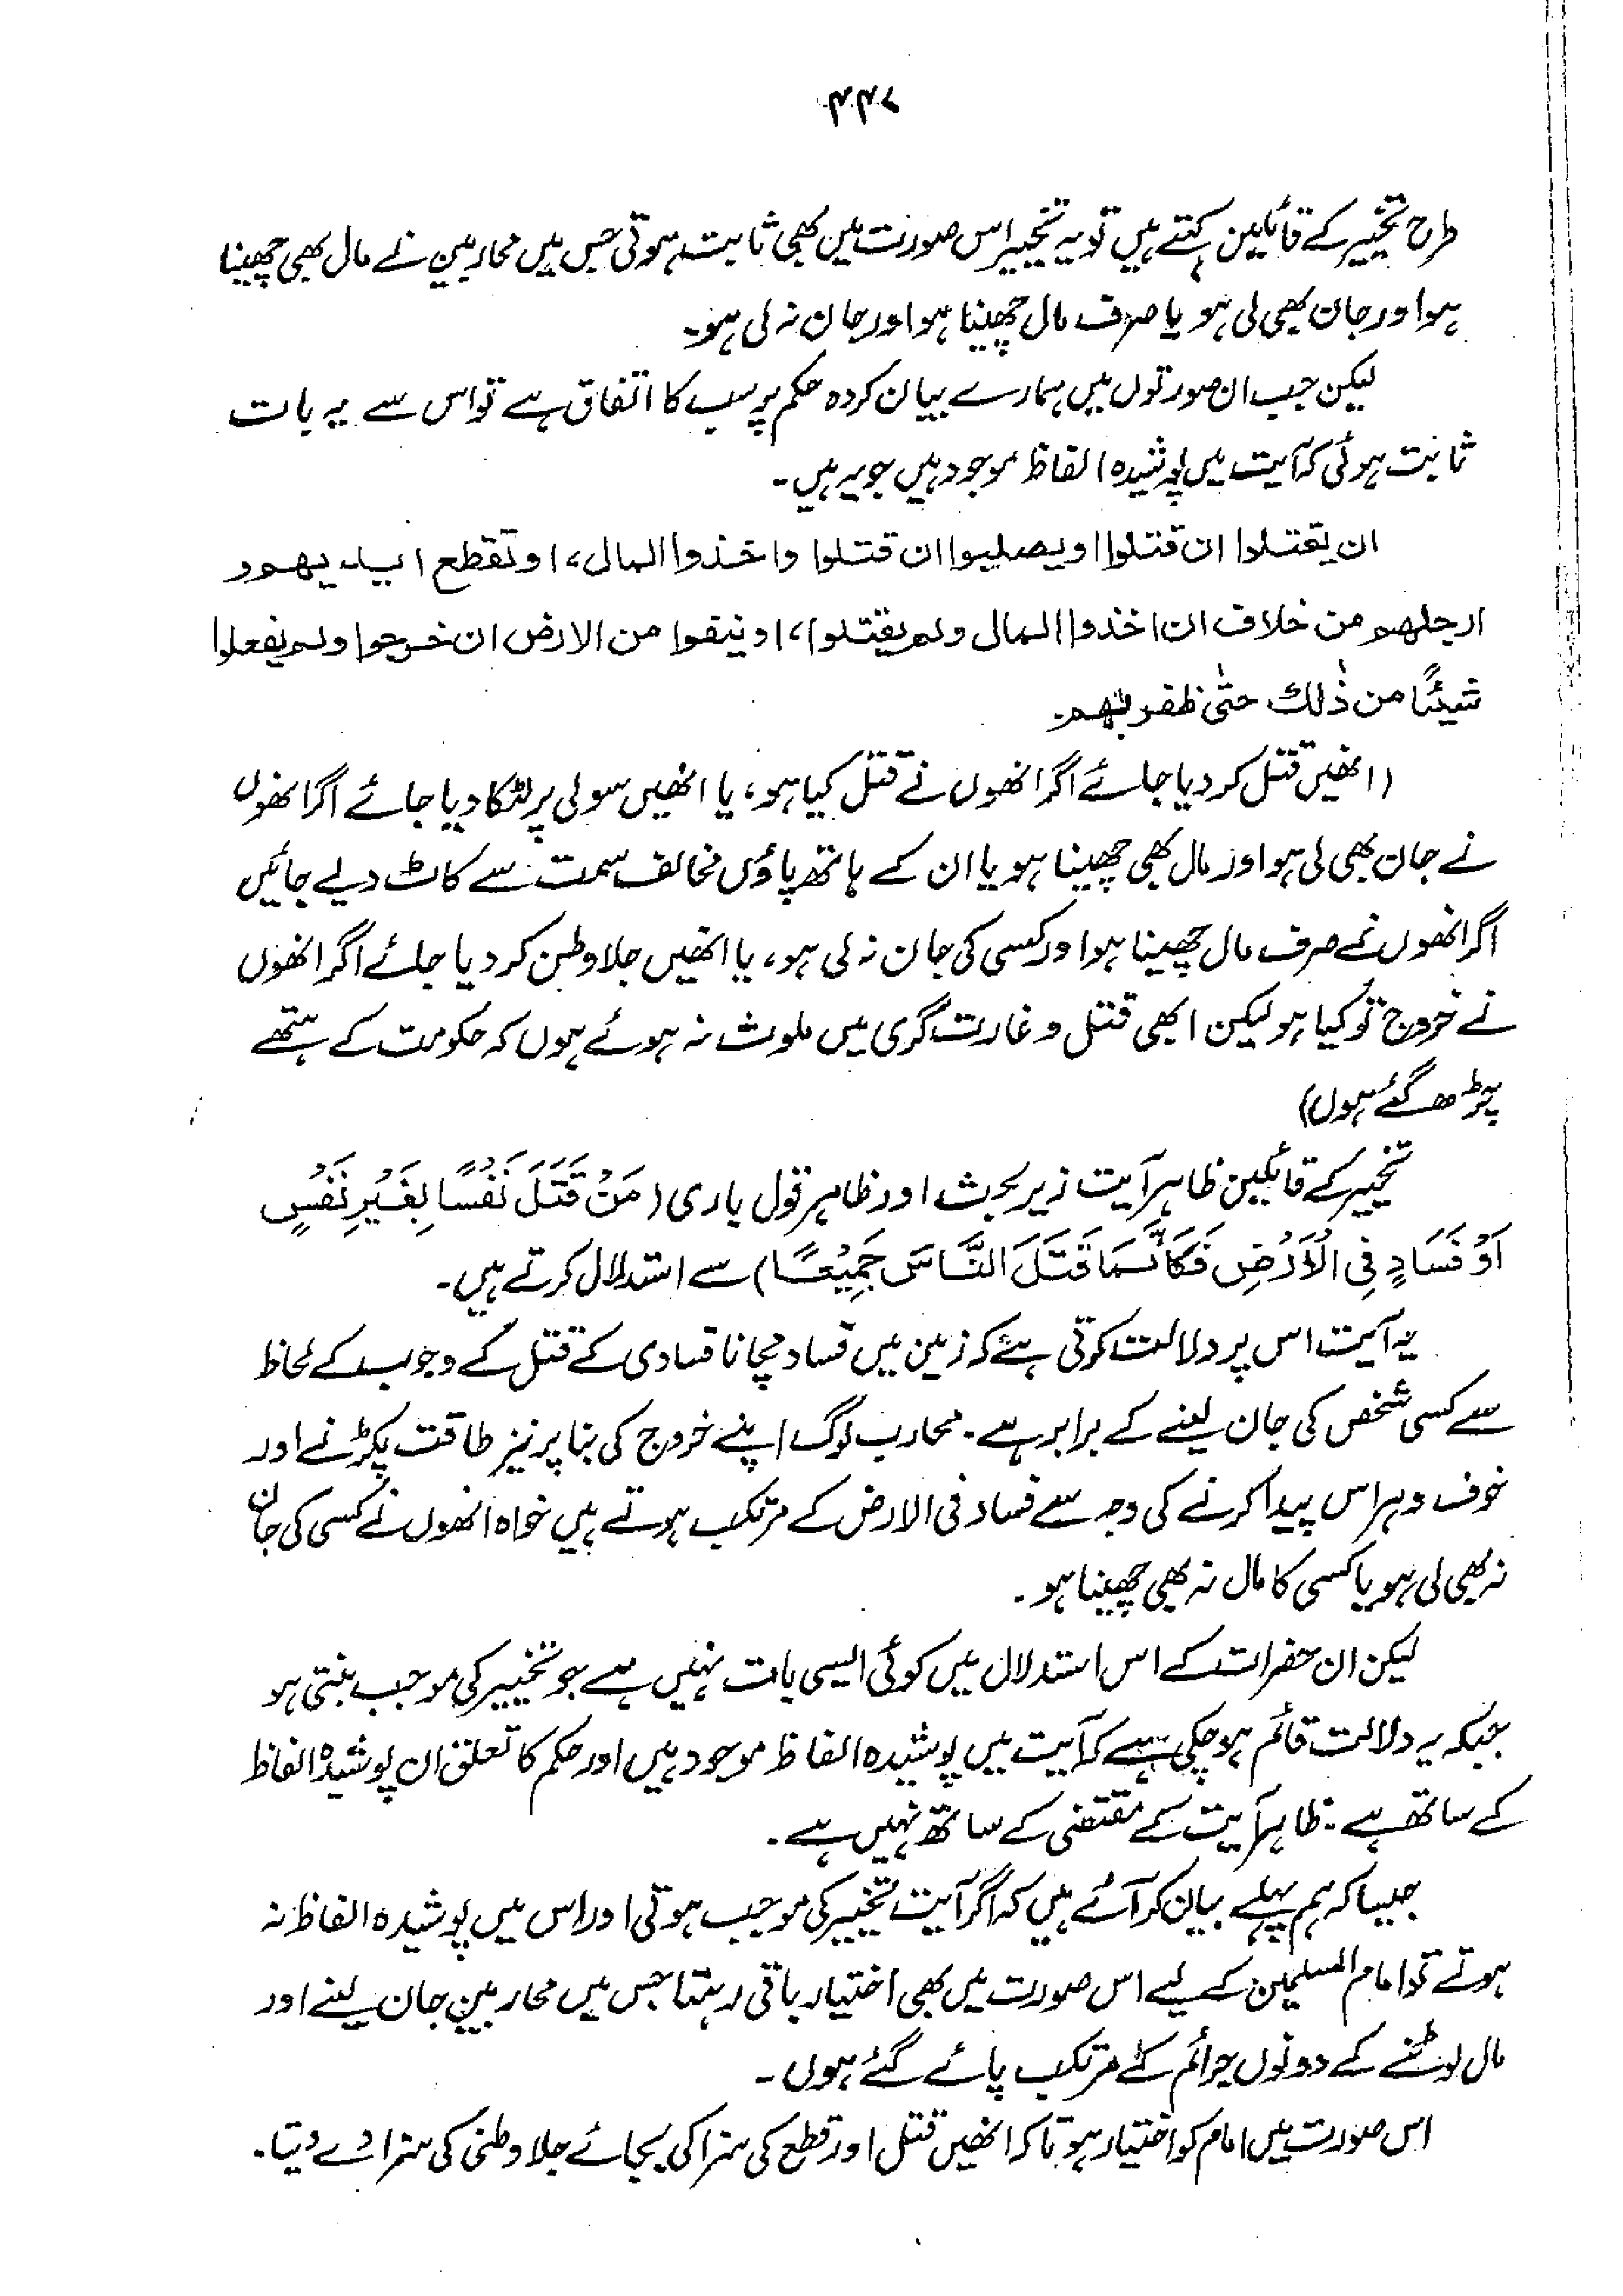 ۴۴۷
طرح تخییر کے قائلین کہتے ہیں تو یہ تخییر اس صورت میں بھی ثابت ہوتی جس میں محاربین نے مال بھی چھینا
ہو اور جان بھی لی ہو یا صرف مال چھینا ہو اور جان نہ لی ہو۔
لیکن جب ان صورتوں میں ہمارے بیان کردہ حکم پر سب کا اتفاق ہے تو اس سے یہ بات
ثابت ہوئی کہ آیت میں پوشیدہ الفاظ موجود ہیں جو یہ ہیں۔
ان یقتلوا ان قتلوا او یصلبوا ان قتلوا واخذوا المال، او تقطع ایدیھم و
ارجلھم من خلاف ان اخذوا المال ولم یقتلوا، او ینفوا من الارض ان خرجوا ولم یفعلوا
شیئًا من ذٰلك حتٰی ظفر بھم۔
(انھیں قتل کر دیا جائے اگر انھوں نے قتل کیا ہو، یا انھیں سولی پر لٹکا دیا جائے اگر انھوں
نے جان بھی لی ہو اور مال بھی چھینا ہو یا ان کے ہاتھ پاؤں مخالف سمت سے کاٹ دیے جائیں
اگر انھوں نے صرف مال چھینا ہو اور کسی کی جان نہ لی ہو، یا انھیں جلا وطن کر دیا جائے اگر انھوں
نے خروج تو کیا ہو لیکن ابھی قتل و غارت گری میں ملوث نہ ہوئے ہوں کہ حکومت کے ہتھے
چڑھ گئے ہوں)
تخییر کے قائلین ظاہر آیت زیر بحث اور ظاہر قول باری (مَنْ قَتَلَ نَفْسًا بِغَیْرِ نَفْسٍ
اَوْ فَسَادٍ فِی الْاَرْضِ فَکَاَنَّمَا قَتَلَ النَّاسَ جَمِیْعًا) سے استدلال کرتے ہیں۔
یہ آیت اس پر دلالت کرتی ہے کہ زمین میں فساد مچانا فسادی کے قتل کے وجوب کے لحاظ
سے کسی شخص کی جان لینے کے برابر ہے۔ محارب لوگ اپنے خروج کی بنا پر نیز طاقت پکڑنے اور
خوف و ہراس پیدا کرنے کی وجہ سے فساد فی الارض کے مرتکب ہوتے ہیں خواہ انھوں نے کسی کی جان
نہ بھی لی ہو یا کسی کا مال نہ بھی چھینا ہو۔
لیکن ان حضرات کے اس استدلال میں کوئی ایسی بات نہیں ہے جو تخییر کی موجب بنتی ہو
جبکہ یہ دلالت قائم ہو چکی ہے کہ آیت میں پوشیدہ الفاظ موجود ہیں اور حکم کا تعلق ان پوشیدہ الفاظ
کے ساتھ ہے۔ ظاہر آیت کے مقتضی کے ساتھ نہیں ہے۔
جیسا کہ ہم پہلے بیان کر آئے ہیں کہ اگر آیت تخییر کی موجب ہوتی اور اس میں پوشیدہ الفاظ نہ
ہوتے تو امام المسلمین کے لیے اس صورت میں بھی اختیار باقی رہتا جس میں محاربین جان لینے اور
مال لوٹنے کے دونوں جرائم کے مرتکب پائے گئے ہوں۔
اس صورت میں امام کو اختیار ہوتا کہ انھیں قتل اور قطع کی سزا کی بجائے جلا وطنی کی سزا دے دیتا۔